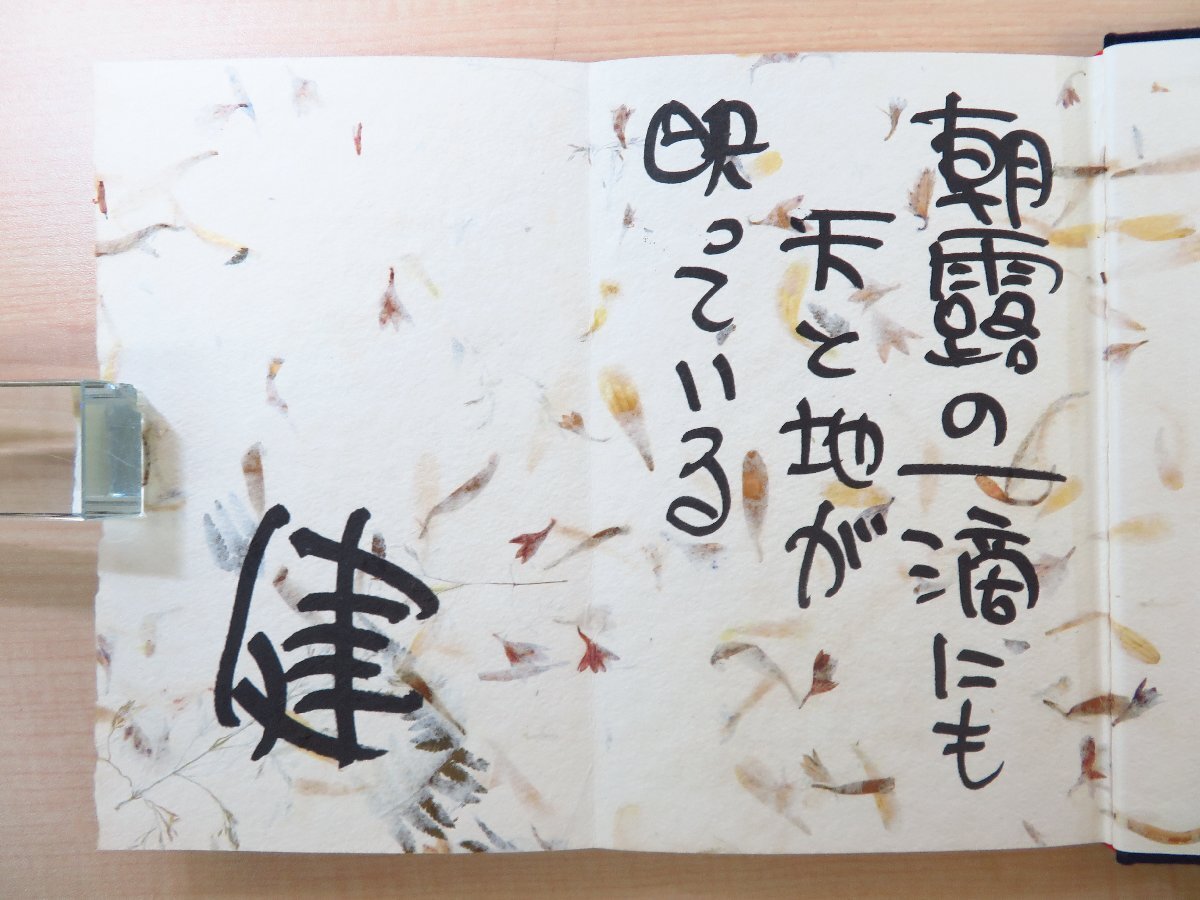 朝露の一滴にも
天と地が
映っている
健